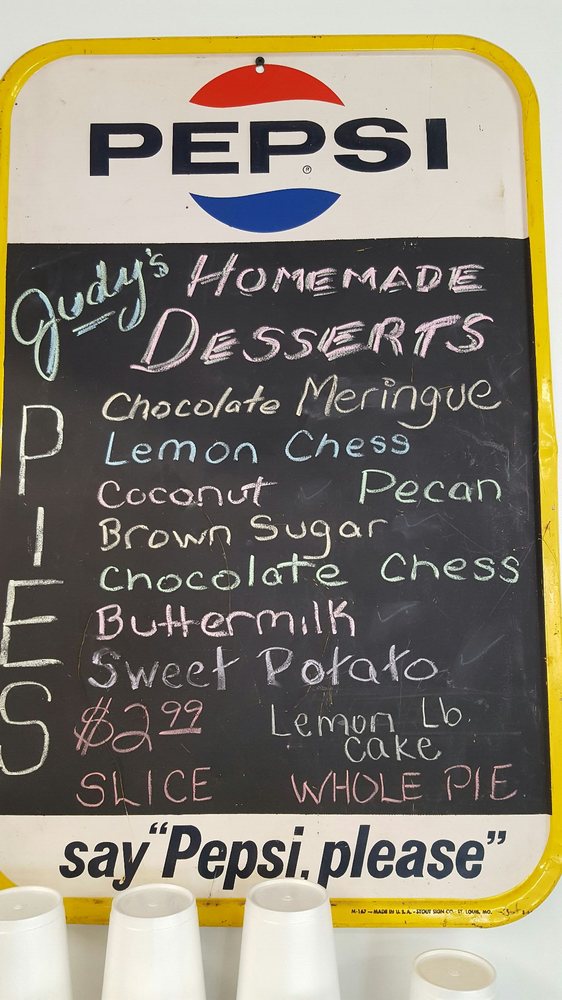 PEPSI
®
Judy's HOMEMADE
DESSERTS
PIES
Chocolate Meringue
Lemon Chess
Coconut Pecan
Brown Sugar
Chocolate Chess
Buttermilk
Sweet Potato
$2.99 Lemon Lb.
Cake
SLICE WHOLE PIE
say "Pepsi, please"
M-167 — MADE IN U.S.A. - STOUT SIGN CO. ST. LOUIS, MO.